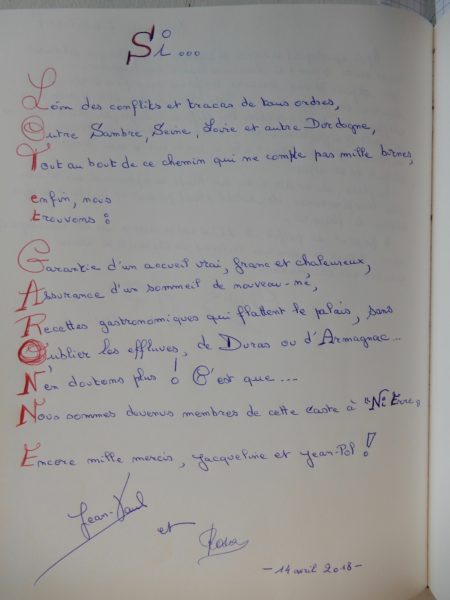 Si...
Loin des conflits et tracas de tous ordres,
Outre Sambre, Seine, Loire et autre Dordogne,
Tout au bout de ce chemin qui ne compte pas mille bornes,
enfin, nous
trouvons :
Garantie d'un accueil vrai, franc et chaleureux,
Assurance d'un sommeil de nouveau-né,
Recettes gastronomiques qui flattent le palais, sans
Oublier les effluves, de Duras ou d'Armagnac...
N'en doutons plus ! C'est que ...
Nous sommes devenus membres de cette caste à "Ni Erre"
Encore mille mercis, Jacqueline et Jean-Pol !
Jean-Paul
et
- 14 avril 2018 -